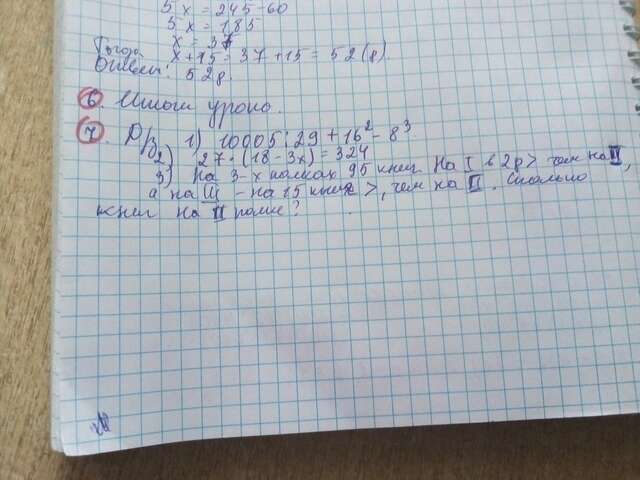 5x = 245-60
5x = 185
x = 37
Тогда x+15 = 37+15 = 52 (g).
Ответ: 52g.
6. Итоги урока.
7. D/з 1) 10005:29+16²-8³
2) 27·(18-3x)=324
3) На 3-х полках 95 книг. На I в 2р> чем на II,
а на III - на 15 книг >, чем на II. Сколько
книг на II полке?